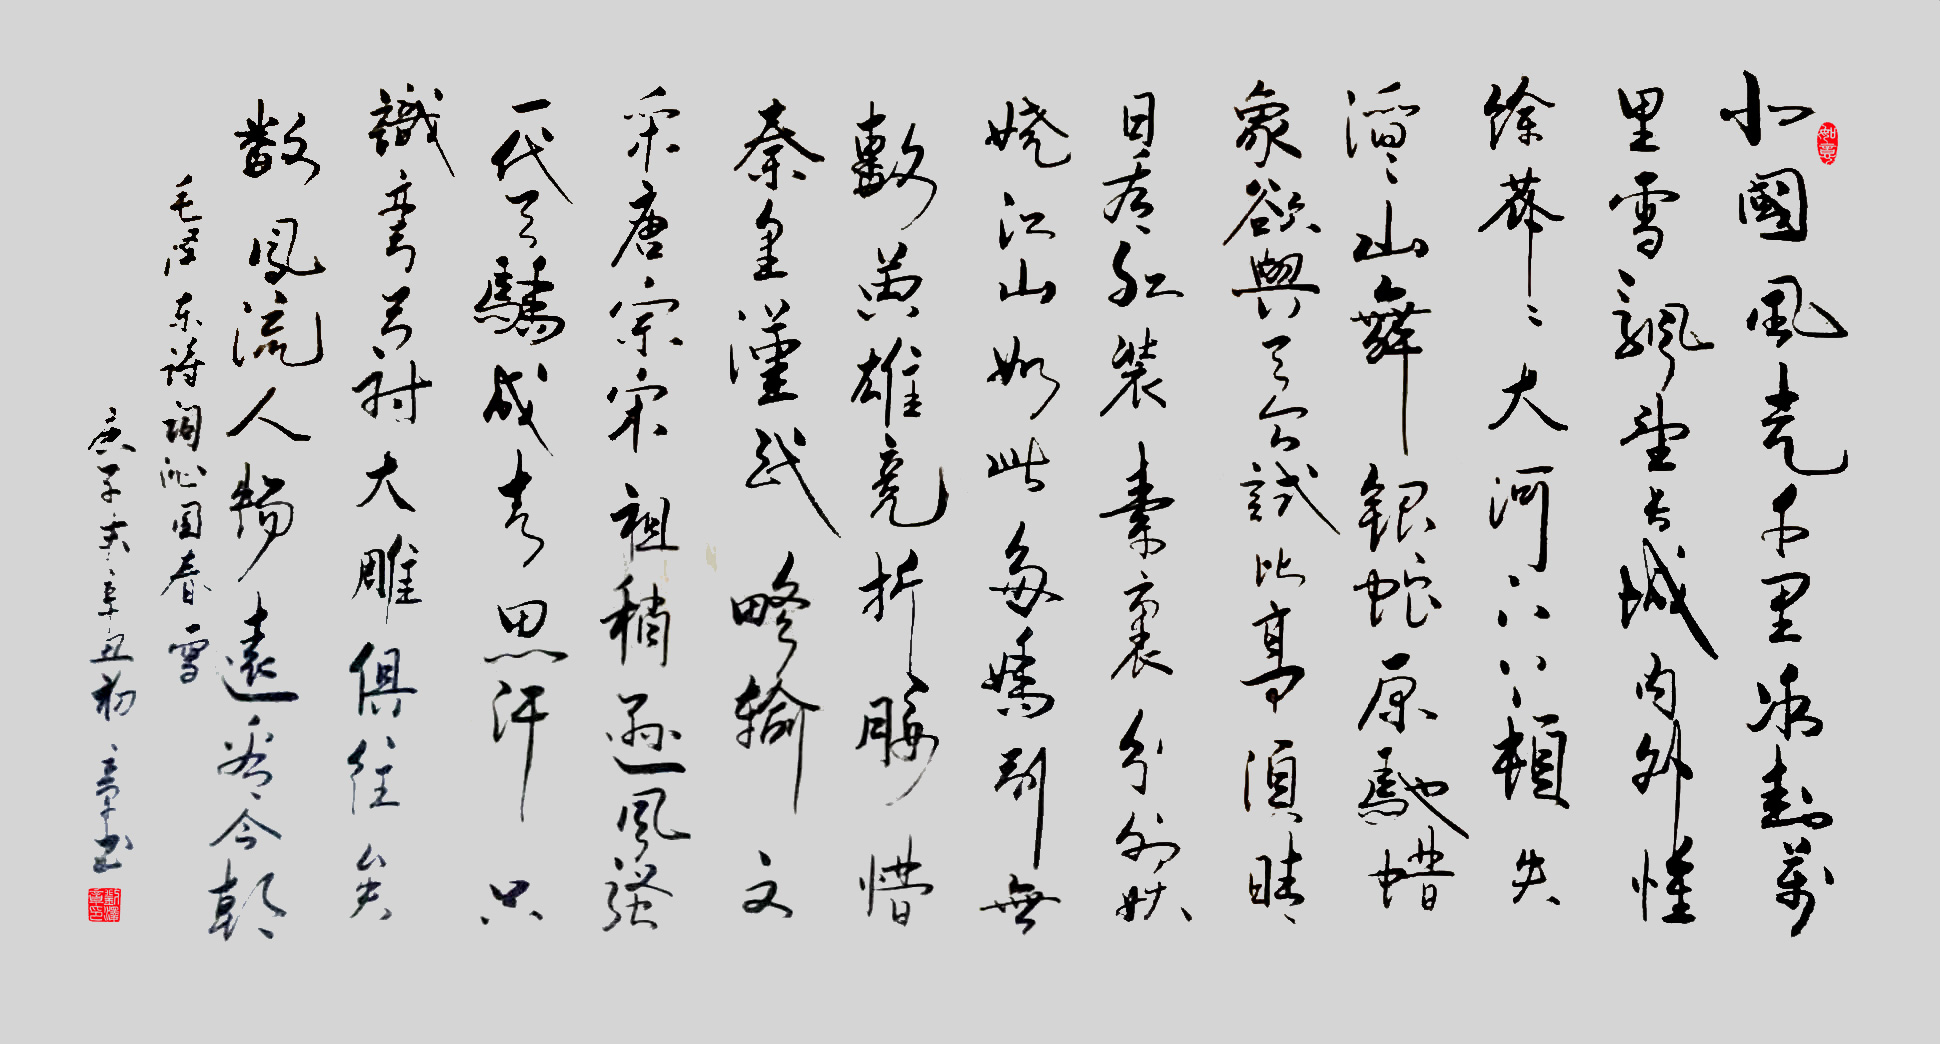 如意
北國風光千里冰封萬
里雪飄望長城内外惟
餘莽〻大河上下頓失
滔〻山舞銀蛇原馳蜡
象欲與天公試比高須晴
日看紅裝素裹分外妖
嬈江山如此多嬌引無
數英雄競折腰惜
秦皇漢武略輸文
采唐宗宋祖稍遜風騷
一代天驕成吉思汗只
識彎弓射大雕俱往矣
數風流人物還看今朝
毛泽东诗词沁园春雪
庚子末辛丑初章书
劉澤章印